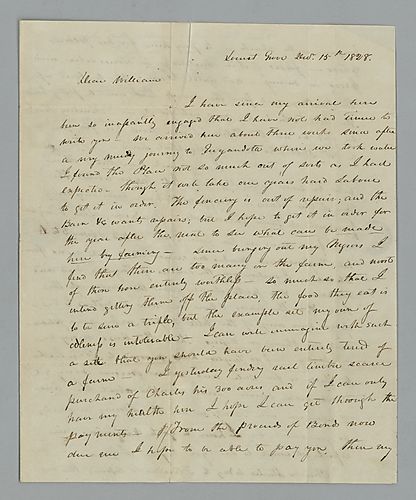 Locust Grove Nov. 15th 1828.
Dear William
I have since my arrival here
been so incessantly engaged that I have not had time to
write you - we arrived here about three weeks since after
a very muddy journey to Guyandotte where we took water
I found the Place not so much out of sorts as I had
expected - though it will take one years hard labour
to get it in order. The fencing is out of repair; and the
Barn &c wants repairs; but I hope to get it in order for
the year after the next to see what can be made
here by farming - since bringing out my Negroes I
find that there are too many on the farm, and most
of them now entirely worthless - so much so, that I
intend getting them off the place, the food they eat is
to be sure a trifle, but the example set my own of
idleness is intolerable - I can well immagine with such
a set that you should have been entirely tired of
a farm - I yesterday finding timber scarce
purchased of Charles his 300 acres and if I can only
have my health here I hope I can get through the
payments - From the proceeds of Bonds now
due me I hope to be able to pay you, then my